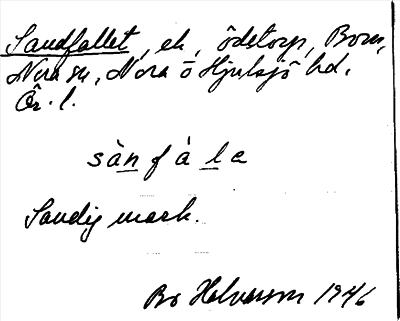 Sandfallet, ek, ödetorp, Born,
Nora sn, Nora o Hjulsjö hd.
Ör. l.
sànfàle
Sandig mark.
Bo Halvarson 1946